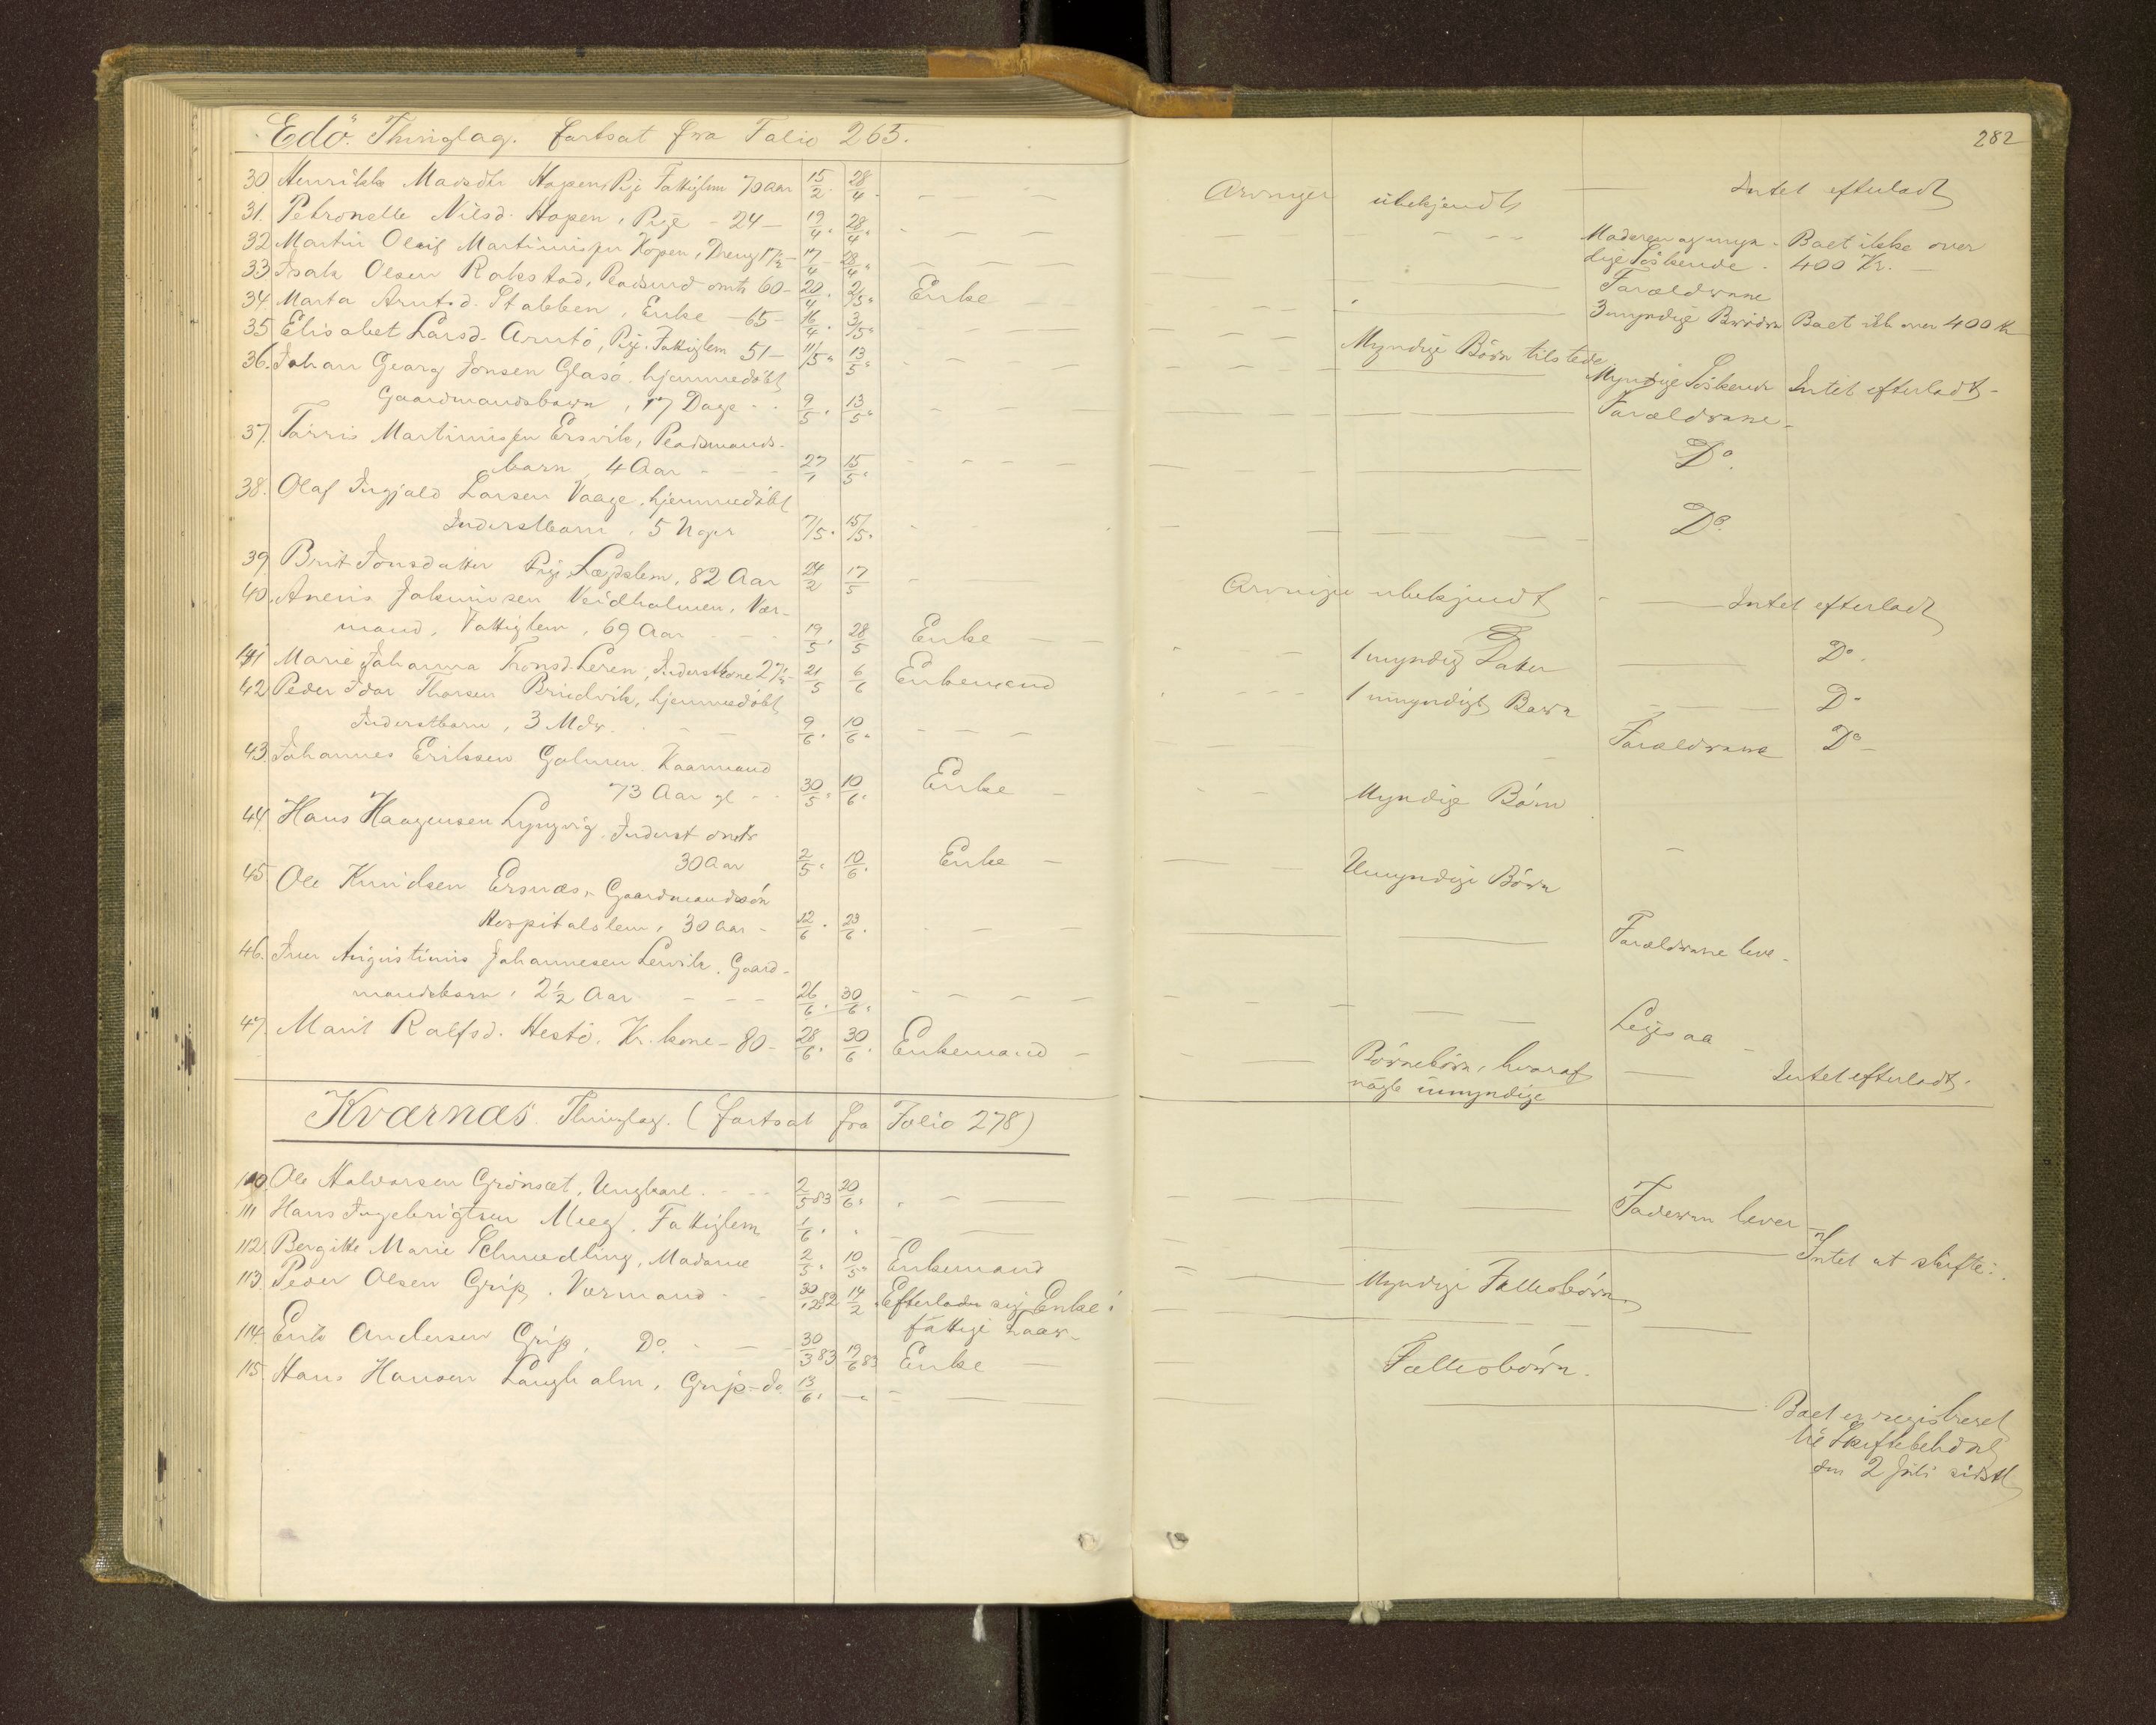 282
Edö Thinglag. fortsat fra Folio 263.
30. Henrikke Madsdtr Hopen, Pige Fattiglem 70 Aar 15/2. 28/4. Arvinger ubekjendt Intet efterladt
31. Petronelle Nilsd. Hopen, Pige - 24 - 19/4. 28/4. Moderen og myn- Boet ikke over
dige Söskende. 400 Kr.
32. Martin Oluf Martinusen Hopen, Dreng 17 1/2 - 17/4 - 28/4. Forældrene
33. Isak Olsen Rokstad, Pladsmd omtr 60 - 20/4. 2/5. Enke 3 myndige Brödre Boet ikk over 400 Kr
34. Marta Arntsd. Stabben, Enke - 65 - 16/4. 3/5. Myndige Börn tilstede
35. Elisabet Larsd. Arntö, Pige. Fattiglem 51 - 11/5. 13/5. Myndige Söskende Intet efterladt -
36. Johan Georg Jonsen Glasö. hjemmedöbt
Gaardmandsbarn, 17 Dage - 9/5. 13/5. Forældrene -
37. Tarris Martinusen Ersvik, Pladsmands-
barn, 4 Aar - 27/1 15/5. Do.
38. Olaf Ingjald Larsen Vaage. hjemmedöbt
Inderstbarn, 5 Uger 7/5. 15/5. Do.
39. Brit Jonsdatter Pige, Lægdslem, 82 Aar 24/2 17/5 Arvinge ubekjendt Intet efterladt
40. Aneus Jakimsen Veidholmen, Vær-
mand, Fattiglem, 69 Aar 19/5. 28/5 Enke 1 myndig Dater Do.
141 Marie Johanna Tronsd. Leren, Inderstkone 27 1/2 - 21/5 6/6 Enkemand 1 umyndigt Barn D-
42 Peder Idar Thorsen Brindvik, hjemmedöbt
Inderstbarn, 3 Mdr. 9/6. 10/6. Forældrene Do -
43. Johannes Eriksen Golmen Kaarmand
73 Aar gl - 30/5. 10/6. Enke Myndige Börn
44. Hans Haagensen Lyngvig. Inderst omtr
30 Aar 2/5. 10/6. Enke Umyndige Börn
45 Ole Knudsen Ersnæs, Gaardmandssön
Hospitalslem, 30 Aar - 12/6. 23/6. Forældrene leve -
46. Iver Augustinus Johannesen Lervik. Gaard-
mandsbarn, 2 1/2 Aar 26/6. 30/6. Ligesaa
47. Marit Ralfsd. Hestö. Kr. kone - 80 - 28/6. 30/6. Enkemand - Börnebörn, hvoraf Intet efterladt.
nogle umyndige
Kværnæs. Thinglag. (fortsat fra Folio 278)
110. Ole Halvorsen Grönset, Ungkarl. 2/5 83 20/6. Faderen lever -
111 Hans Ingebrigtsen Meeg. Fattiglem 1/6. Intet at skifte.
112. Bergitte Marie Schmedling, Madame 2/5. 10/5. Enkemand Myndige Fællesbörn
113. Peder Olsen Grip. Værmand - 30/12 82 14/2. Efterlader sig Enke i
fattige Kaar -
114. Erik Andersen Grip, Do. 30/3 83 19/6 83 Enke Fællesbörn.
115. Hans Hansen Langholm, Grip - do 13/6. Boet er registreret
til Skiftebehdal
den 2 Juli sidstl